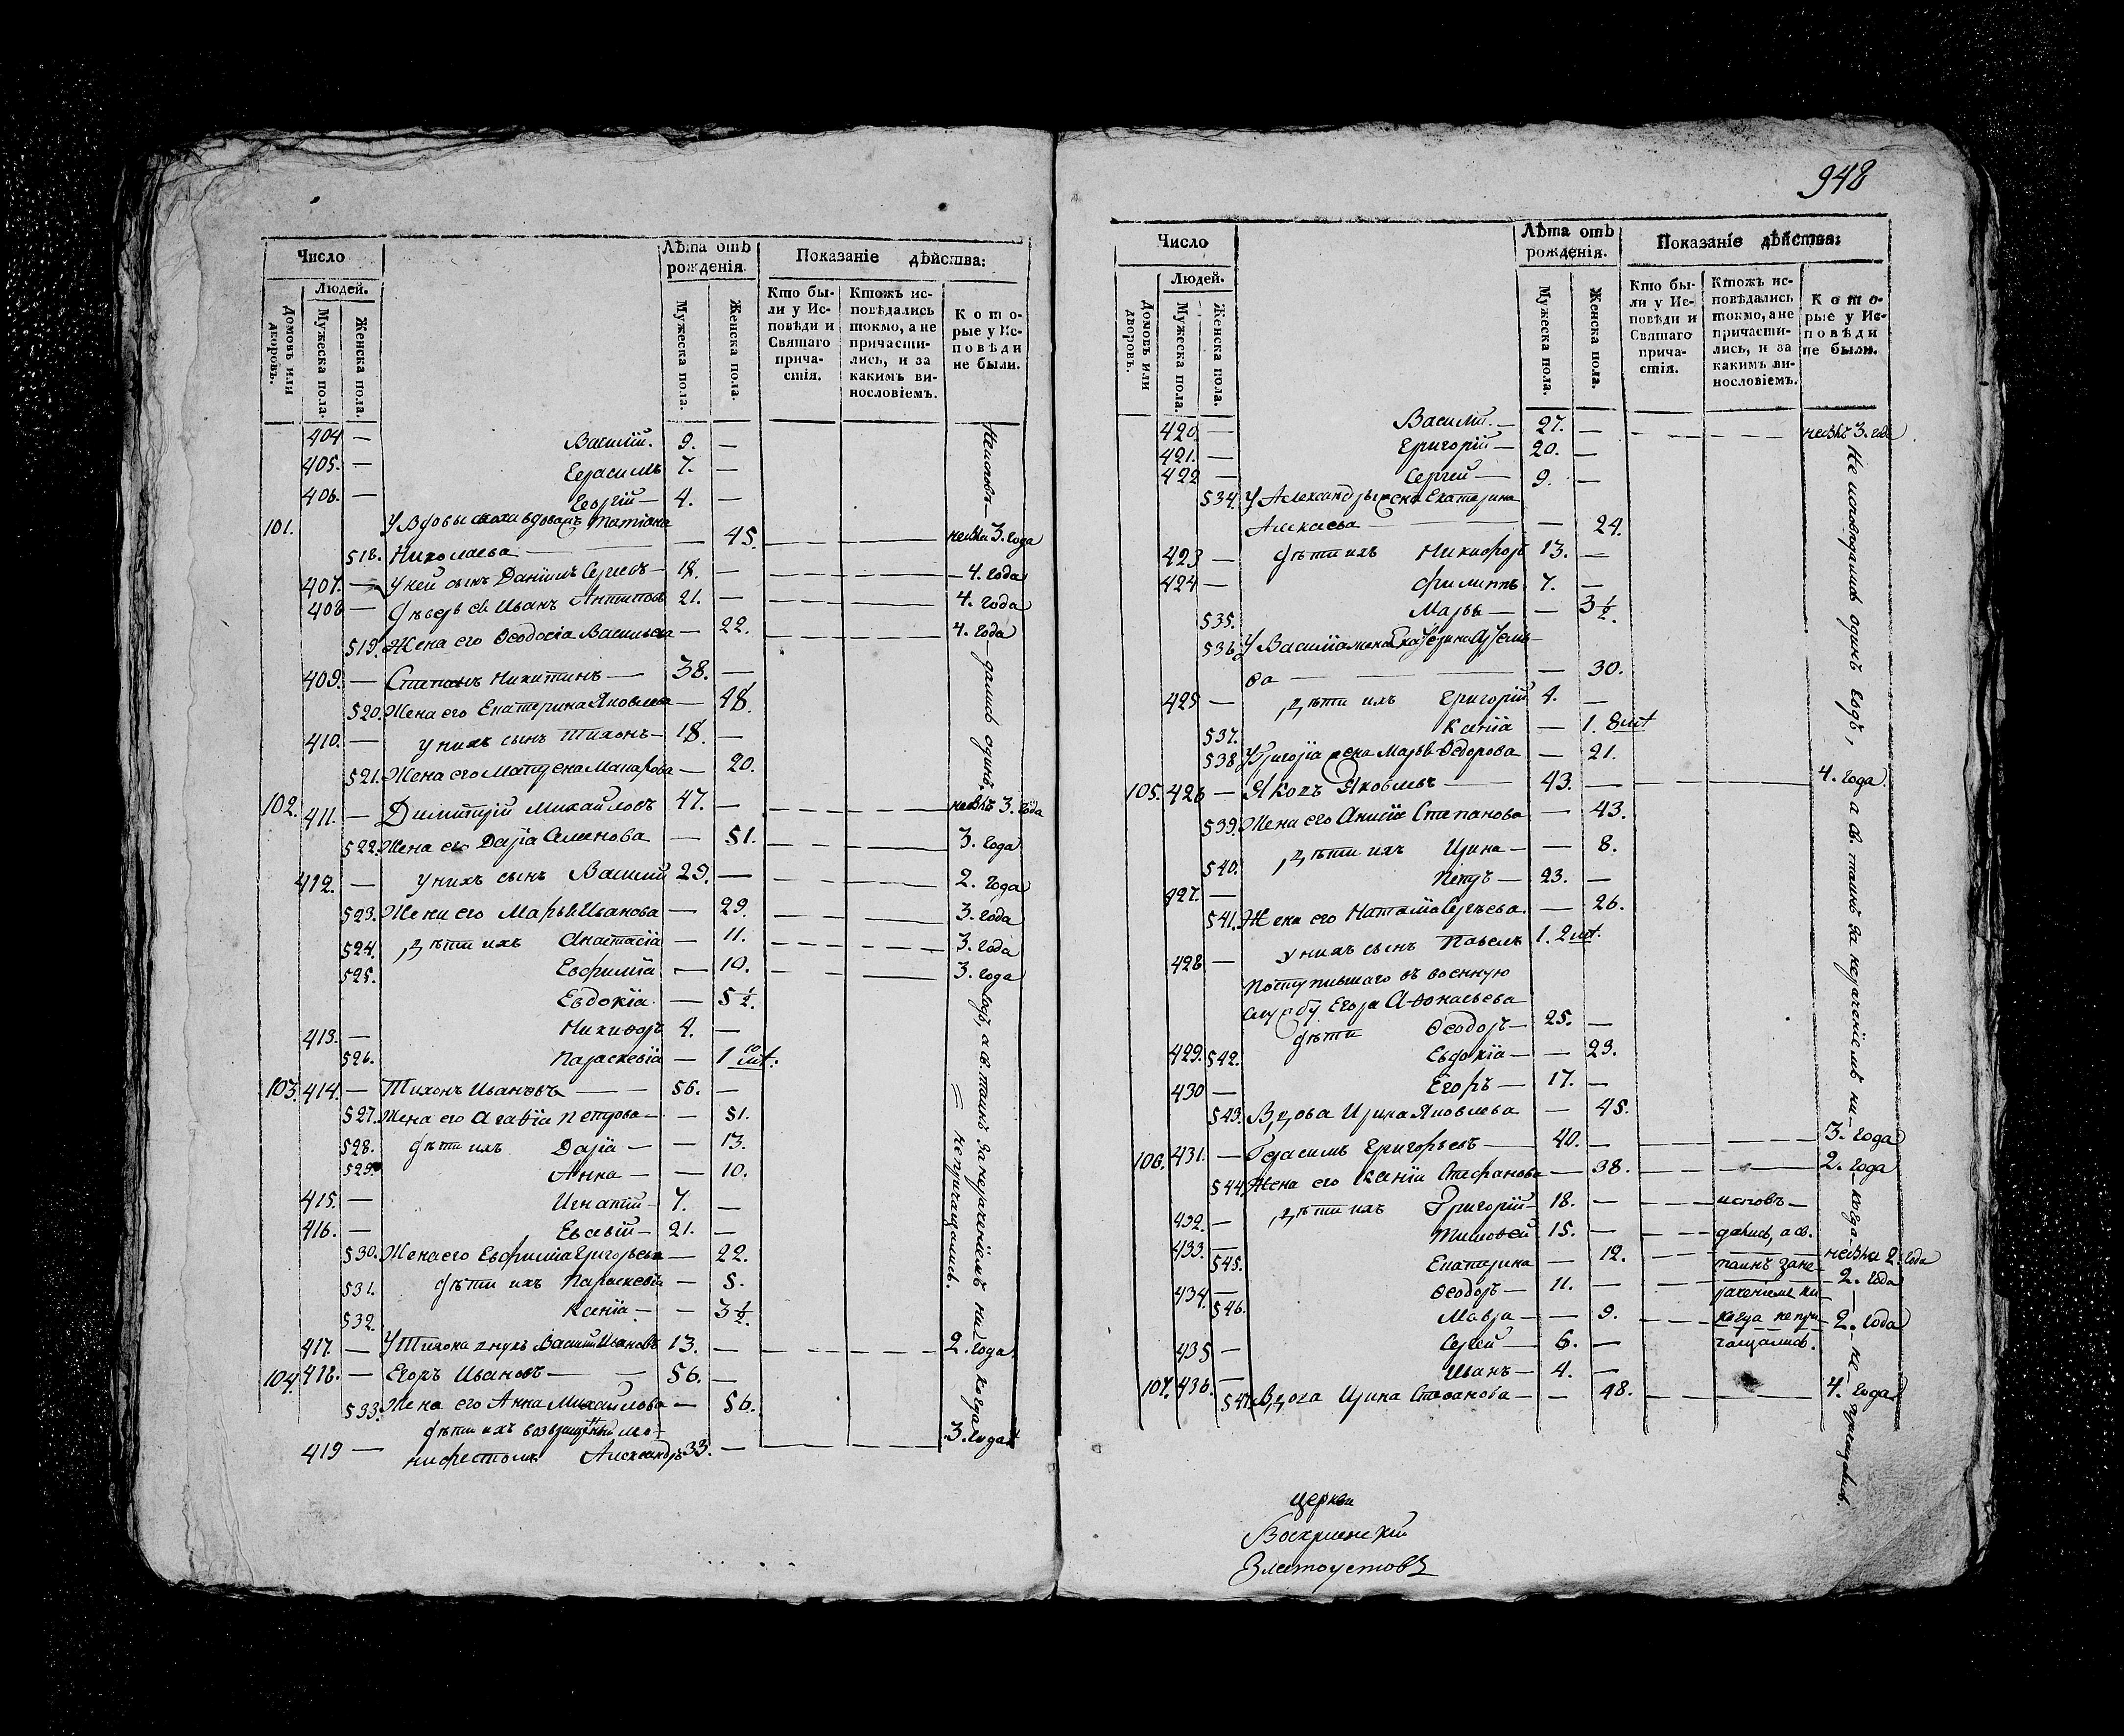 Число
Лѣта отъ рожденія.
Показаніе дѣйства:
Людей.
Домовъ или дворовъ.
Мужеска пола.
Женска пола.
Мужеска пола.
Женска пола.
Кто были у Исповѣди и Святаго причастія.
Ктожъ исповѣдались токмо, а не причастились, и за какимъ винословіемъ.
Которые у Исповѣди не были.
404 — Василій. 9. —
405. — Герасимъ 7. —
406. — Георгій — 4. —
101. У Вдовы вдовацъ Татіана
518. Николаева — — 45. 3. года
407. — У ней сынъ Даніилъ Сергѣевъ — 18. — 4. года
408 — Иванъ Антиповъ 21. — 4. года
519. Жена его Ѳеодосія Васильева — 22. 4. года
409. — Степанъ Никитинъ — 38. —
520. Жена его Екатерина Яковлева — 48.
410. — у нихъ сынъ Тихонъ — 18. —
521. Жена его Матрена Макарова — 20.
102. 411. — Димитрій Михайловъ 47. — 3. года
522. Жена его Дарія Семенова — 51. 3. года
412. — у нихъ сынъ Василій 29. — 2. года
523. Жена его Марья Иванова — 29. 3. года
524. дѣти ихъ Анастасіа — 11. 3. года
525. Евфиміа — 10. 3. года
Евдокіа — 5 1/2.
413. — Никифоръ 4. —
526. Параскевіа — 1 10 мѣ.
103. 414. — Тихонъ Ивановъ — 56. —
527. Жена его Агафіа Петрова — — 51.
528. дѣти ихъ Даріа — — 13.
529. Анна — — 10.
415. — Игнатій — 7. —
416. — Евсѣвій — 21. —
530. Жена его Евфиміа Григорьева — 22.
531. дѣти ихъ Параскевіа — 5.
532. Ксеніа — — 3 1/2.
417. — У Тихона внукъ Василій Ивановъ 13. — 2. года.
104. 418. — Егоръ Ивановъ — 56. —
533. Жена его Анна Михайлова — 56.
дѣти ихъ возвращенный ма-
419 — нифестомъ Александръ 33. — 3. года
дались одинъ
годъ, а св. таинъ за нераченіемъ никогда
= не причащались.
948
Число
Лѣта отъ рожденія.
Показаніе дѣйства:
Людей.
Домовъ или дворовъ.
Мужеска пола.
Женска пола.
Мужеска пола.
Женска пола.
Кто были у Исповѣди и Святаго причастія.
Ктожъ исповѣдались токмо, а не причастились, и за какимъ винословіемъ.
Которые у Исповѣди не были.
420. — Василій. — 27. — 3. года
421. — Григорій — 20. —
422 — Сергей — 9. —
534. У Александры жена Екатерина
Алексѣева — — 24.
423 — дѣти ихъ Никифоръ 13. —
424 — Филиппъ 7. —
535. Марья — — 3 1/2.
536. У Василіа жена Екатерина Артемь-
ва — — 30.
425 — дѣти ихъ Григорій 4. —
537. Ксеніа — 1. 8 мѣ
538. У Григоріа жена Марья Ѳедорова — 21.
105. 426 — Яковъ Яковлевъ — 43. — 4. года
539. Жена его Анисіа Степанова — 43.
540. дѣти ихъ Ирина — — 8.
427. — Петръ — 23. —
541. Жена его Наталіа Сергѣева — 26.
428 — у нихъ сынъ Павелъ 1. 2 мѣ.
Поступившаго въ военную
службу Егора Афонасьева
429. дѣти Ѳеодоръ — 25. —
542. Евдокіа — — 23.
430 — Егоръ — 17. —
543. Вдова Ирина Яковлева — 45.
106. 431. — Герасимъ Григорьевъ — 40. — 3. года
544. Жена его Ксеніа Стефанова — 38. 2. года
432. — дѣти ихъ Григорій — 18. — исповѣ-
433. — Тимофей 15. — дались, а св.
545. Екатерина — 12. таинъ зане- 2. года
434. — Ѳеодоръ — 11. — раченіемъ ни- 2. года
546. Мавра — — 9. когда непри- 2. года
435 — Сергей — 6. — чащались.
436. — Иванъ — 4. —
107. 547. Вдова Ирина Стефанова — — 48. 4. года
Не исповѣдались одинъ годъ, а св. таинъ за нераченіемъ ни-когда не причащались.
церкви
Воскресенскій
Златоустовъ